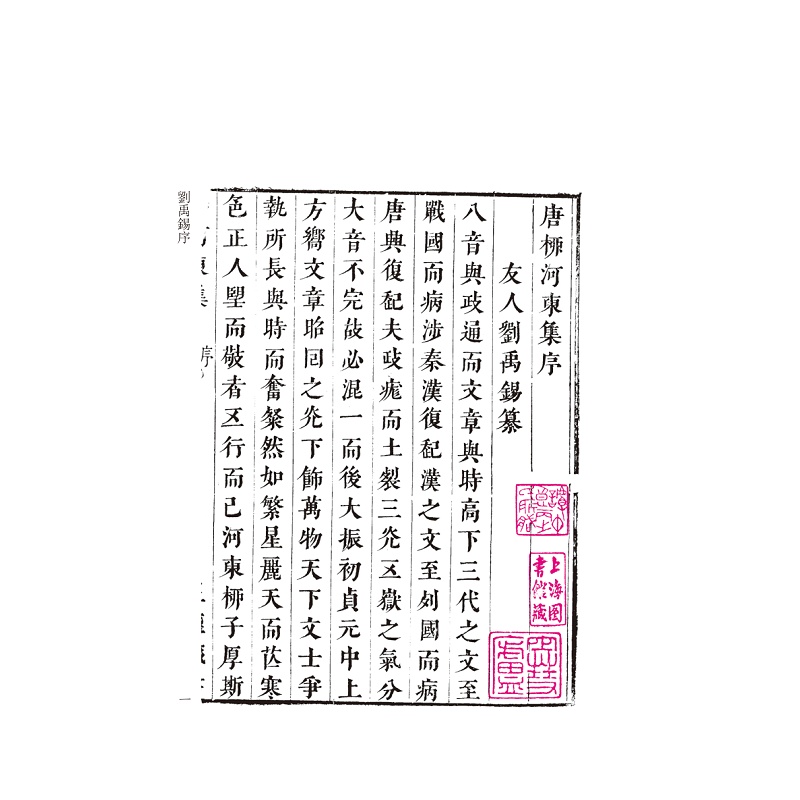 唐栁河東集序
友人劉禹錫纂
八音與政通而文章與時高下三代之文至
戰國而病涉秦漢復起漢之文至列國而病
唐興復起夫政龐而土裂三光五嶽之氣分
大音不完故必混一而後大振初貞元中上
方嚮文章昭回之光下飾萬物天下文士爭
執所長與時而奮粲然如繁星麗天而芒寒
色正人望而敬者五行而已河東栁子厚斯
劉禹錫序
一
上海圖
書館藏